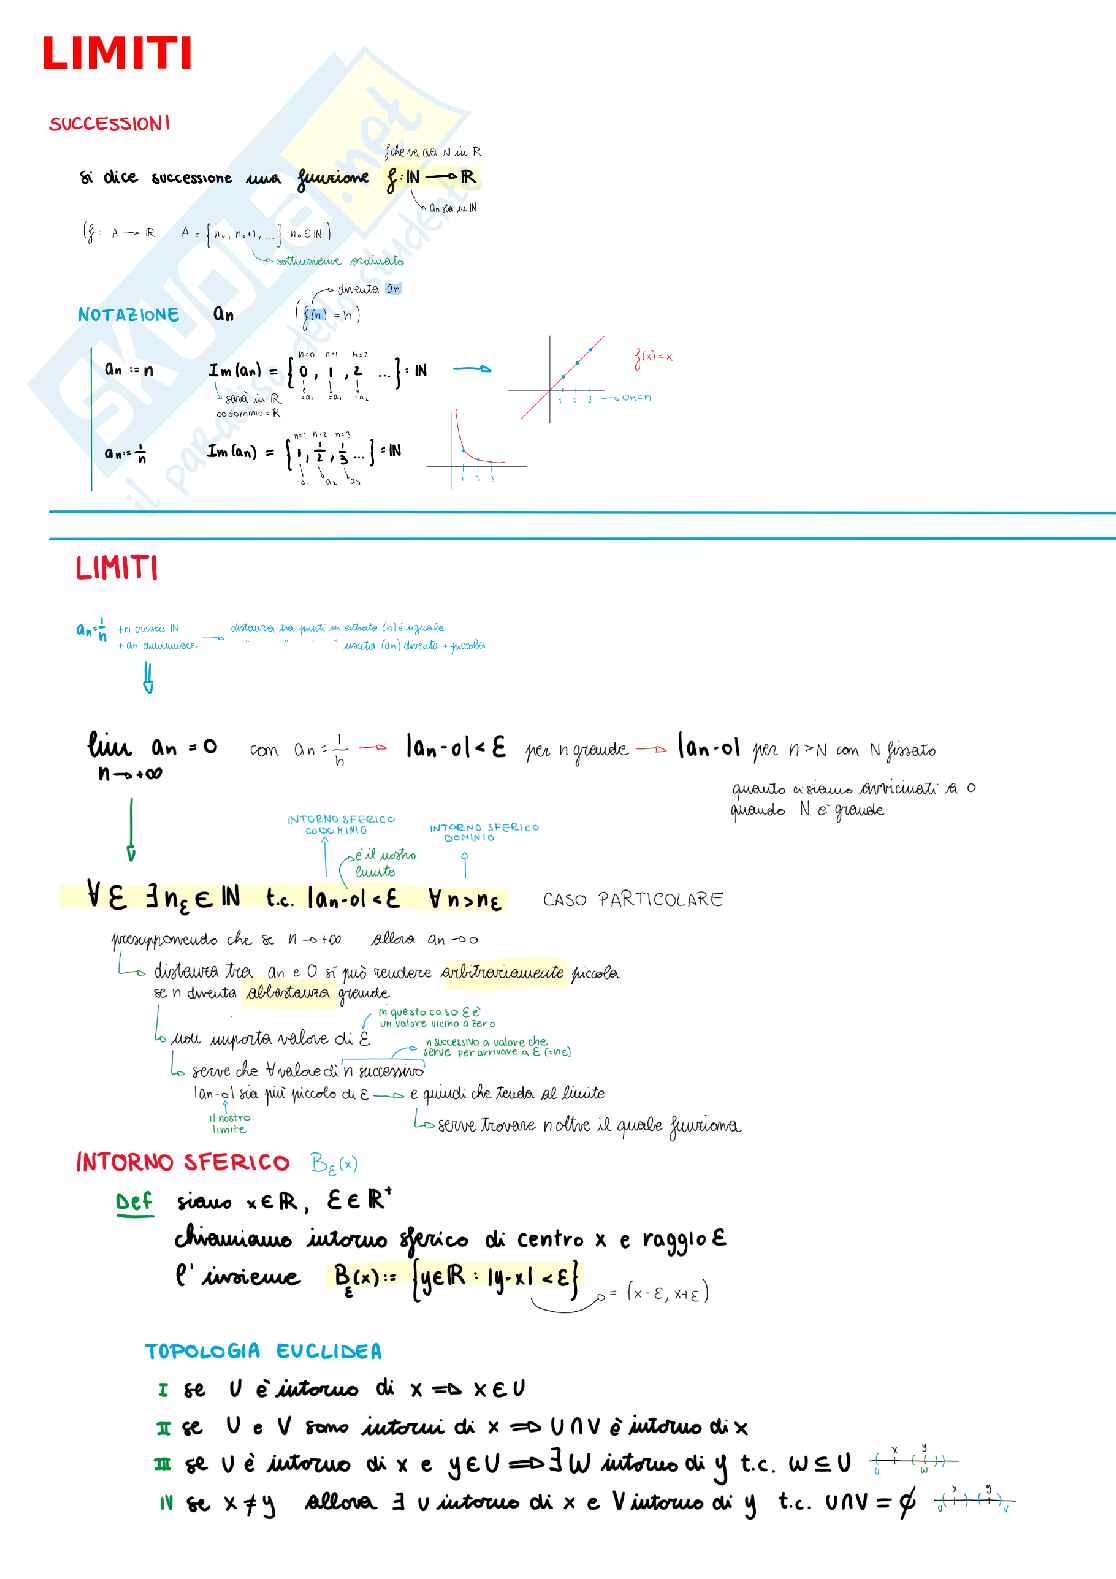 LIMITI
SUCCESSIONI
f che va da N in R
si dice successione una funzione f: ℕ → ℝ
an sta in ℕ
(f: A → ℝ A = {n₀, n₀+1, ...} n₀ ∈ ℕ)
sottoinsieme ordinato
diventa an
NOTAZIONE an (f(n) = n)
n=0 n=1 n=2
an := n Im(an) = {0, 1, 2 ...} = ℕ
f(x)=x
sarà in ℝ =a₁ =a₂
codominio = ℝ
1 2 3 an=n
n=1 n=2 n=3
an := 1/n Im(an) = {1, 1/2, 1/3 ...} = ℕ
a₁ a₂ a₃
1 2 3
skuola.net
il paradiso dello studente
LIMITI
an = 1/n +n cresce ℕ → distanza tra punti in entrata (n) è uguale
+ an diminuisce " " " " uscita (an) diventa + piccola
lim an = 0 con an = 1/n → |an-0| < ε per n grande → |an-0| per n > N con N fissato
n→+∞
quanto ci siamo avvicinati a 0
quando N è grande
INTORNO SFERICO CODOMINIO
INTORNO SFERICO DOMINIO
è il nostro limite
∀ε ∃nε ∈ ℕ t.c. |an-0| < ε ∀n > nε CASO PARTICOLARE
presupponendo che se n→+∞ allora an→0
distanza tra an e 0 si può rendere arbitrariamente piccola
se n diventa abbastanza grande
in questo caso ε è
un valore vicino a zero
non importa valore di ε
n successivo a valore che
serve per arrivare a ε (=nε)
serve che ∀ valore di n successivo
|an-0| sia più piccolo di ε → e quindi che tenda al limite
il nostro
limite
serve trovare n oltre il quale funziona
INTORNO SFERICO Bε(x)
Def siano x∈ℝ, ε∈ℝ⁺
chiamiamo intorno sferico di centro x e raggio ε
l'insieme Bε(x) := {y∈ℝ : |y-x| < ε}
= (x-ε, x+ε)
TOPOLOGIA EUCLIDEA
I se U è intorno di x ⇒ x∈U
II se U e V sono intorni di x ⇒ U∩V è intorno di x
III se U è intorno di x e y∈U ⇒ ∃ W intorno di y t.c. W⊆U x y U W
IV se x≠y allora ∃ U intorno di x e V intorno di y t.c. U∩V = ∅ x y U V